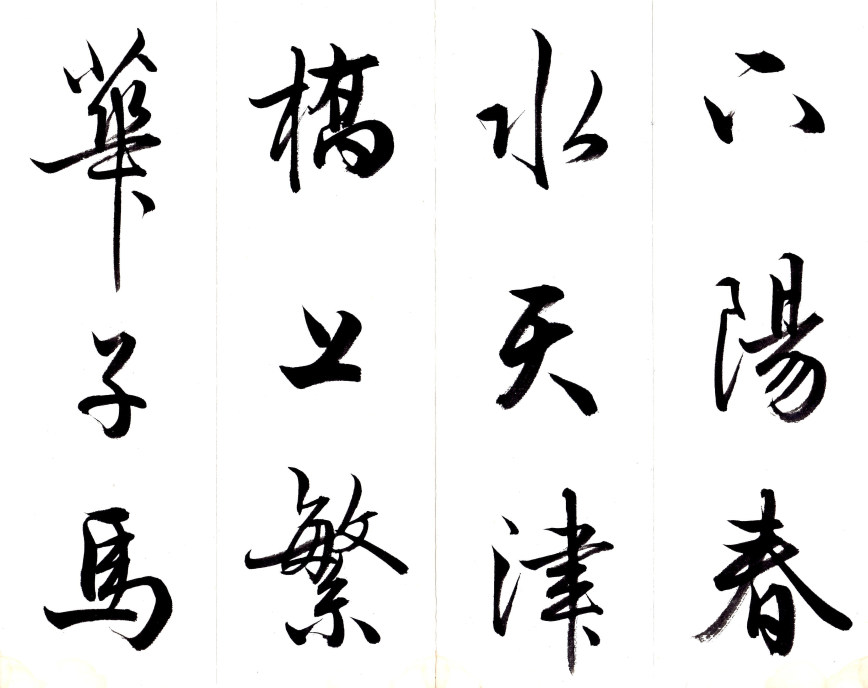 下陽春
水天津
橋上繁
華子馬